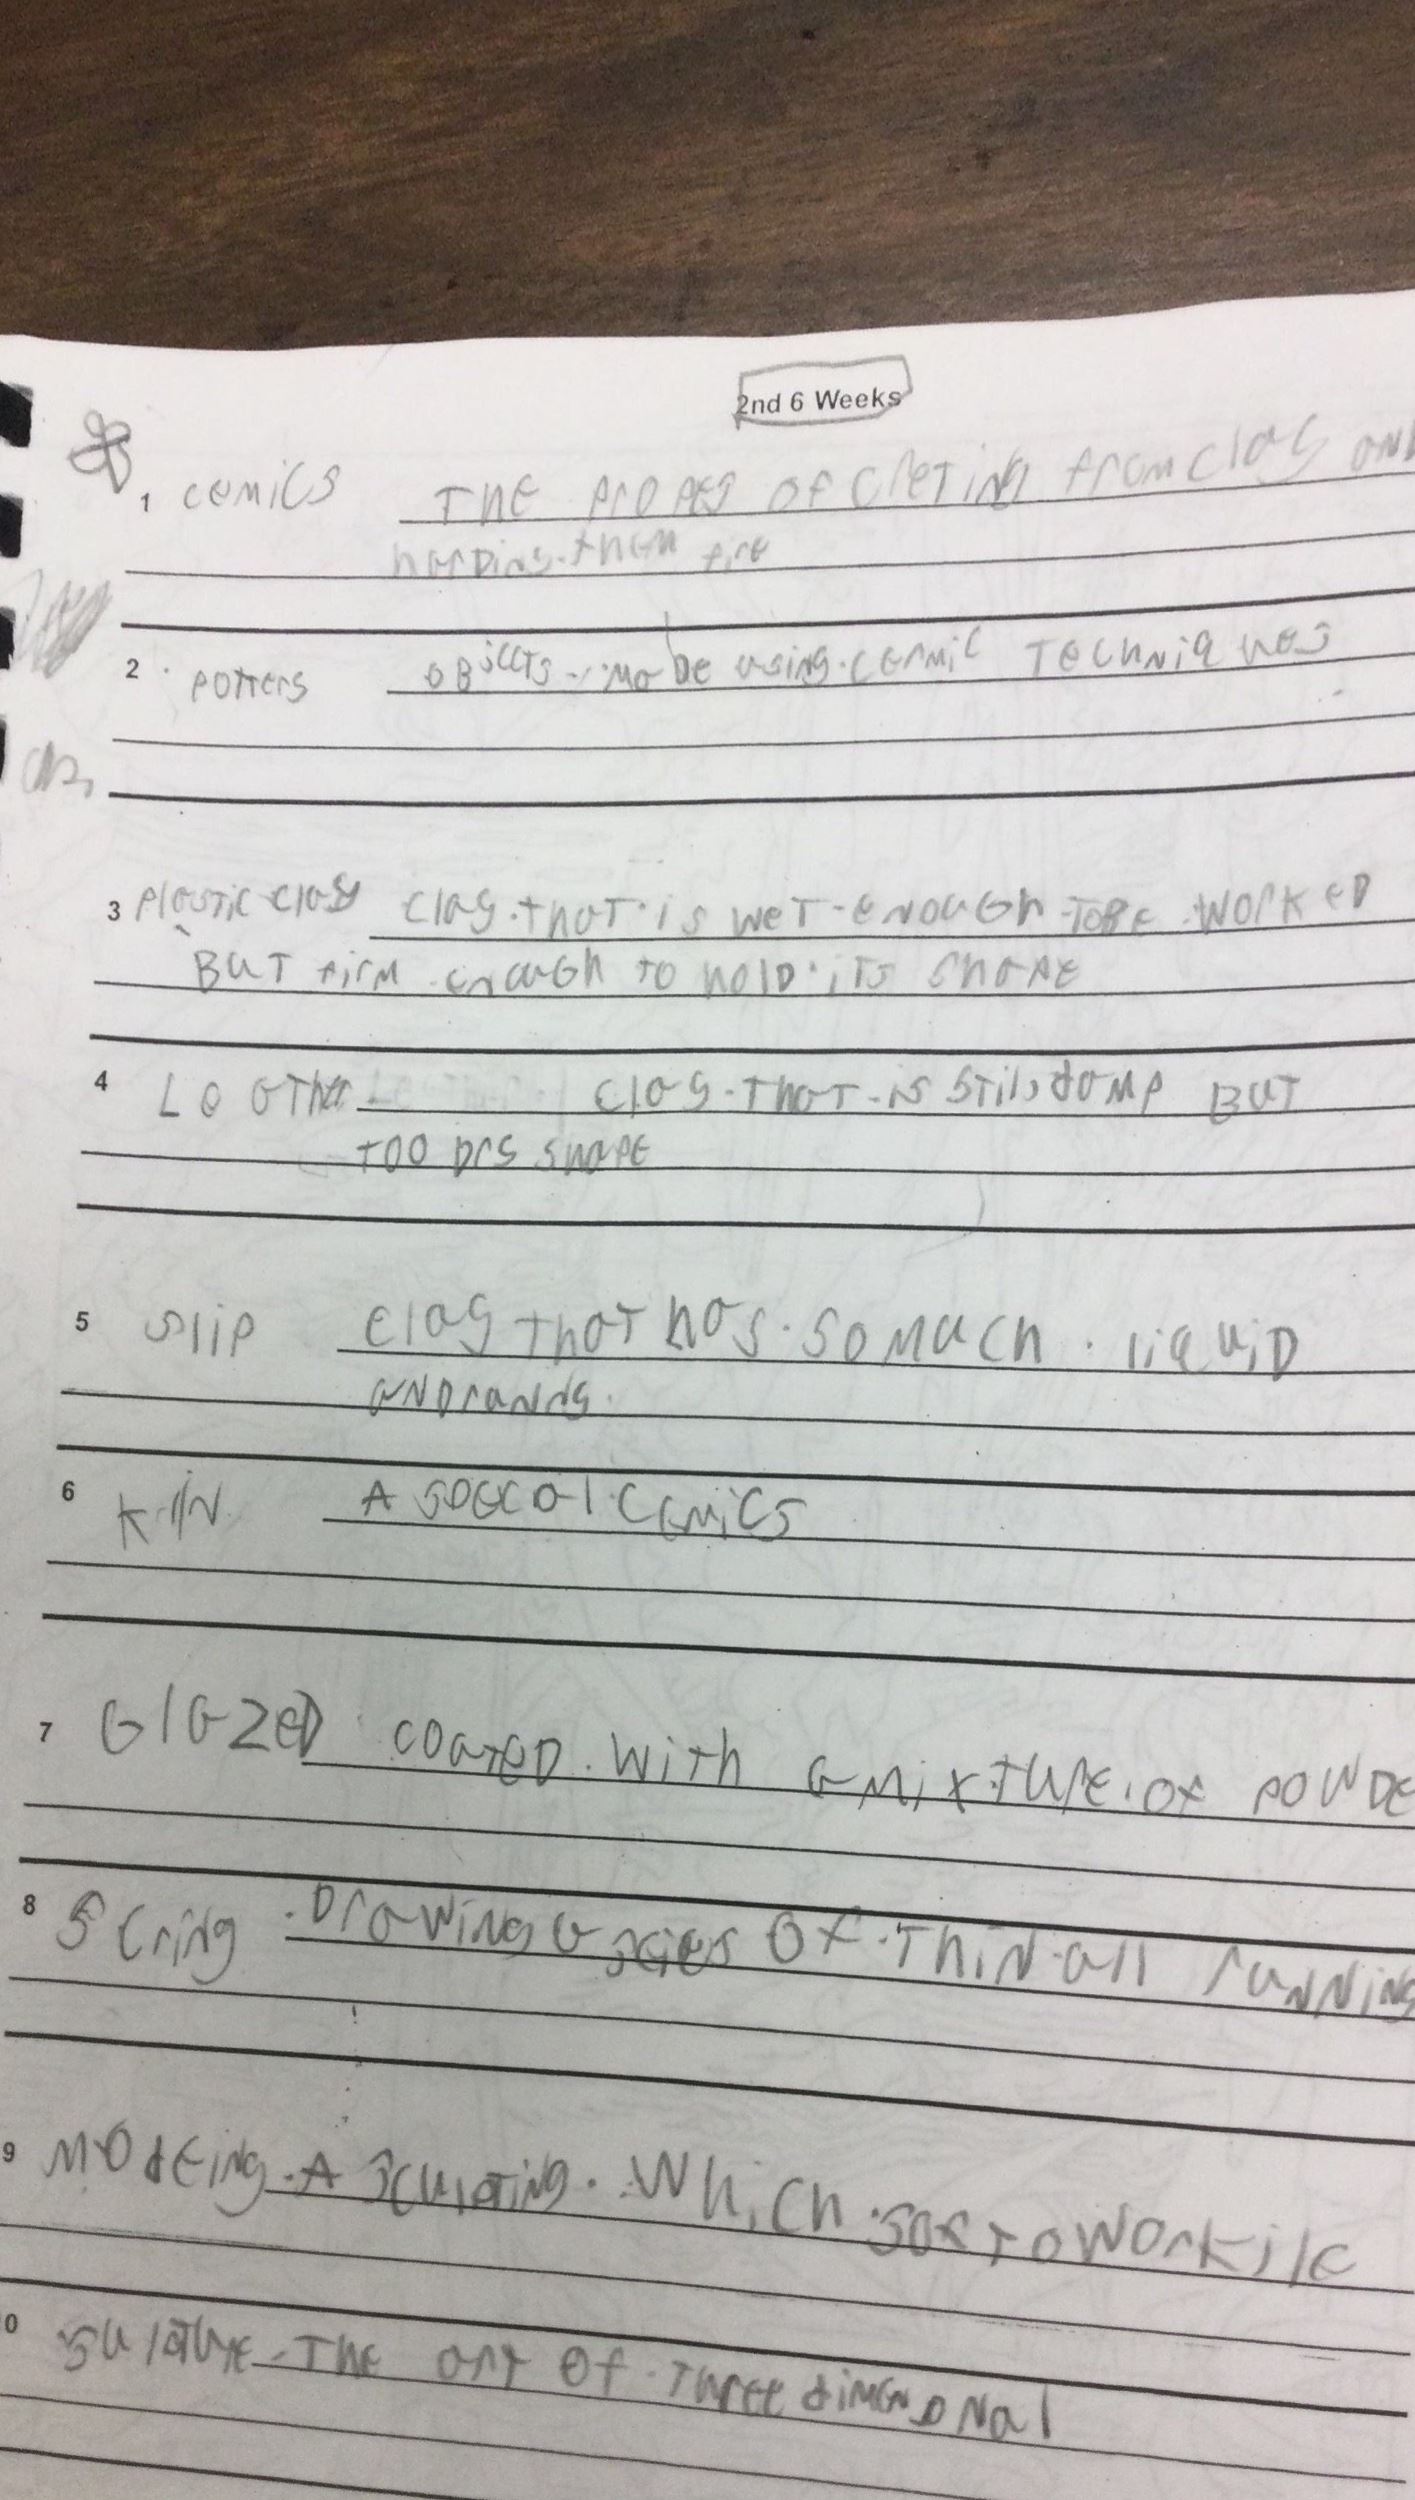 2nd 6 Weeks
1 cemics THE PROPES OF CRETING from clay and
harding them fire
2 potters OBJECTS made using cermic TECHNIQUES
3 Plastic clay clay that is WET enough TOBE WORKED
BUT firm enough to hold its shape
4 Leather clay that is still damp BUT
TOO Dry SHAPE
5 Slip clay that has somuch liquid
AND runng
6 KilN A specal cemics
7 Glazed coated with a mixture of powde
8 Scring Drawing a series Of thin all running
9 Modeing A sculpting Which sof to work
0 THE art Of three dimensonal